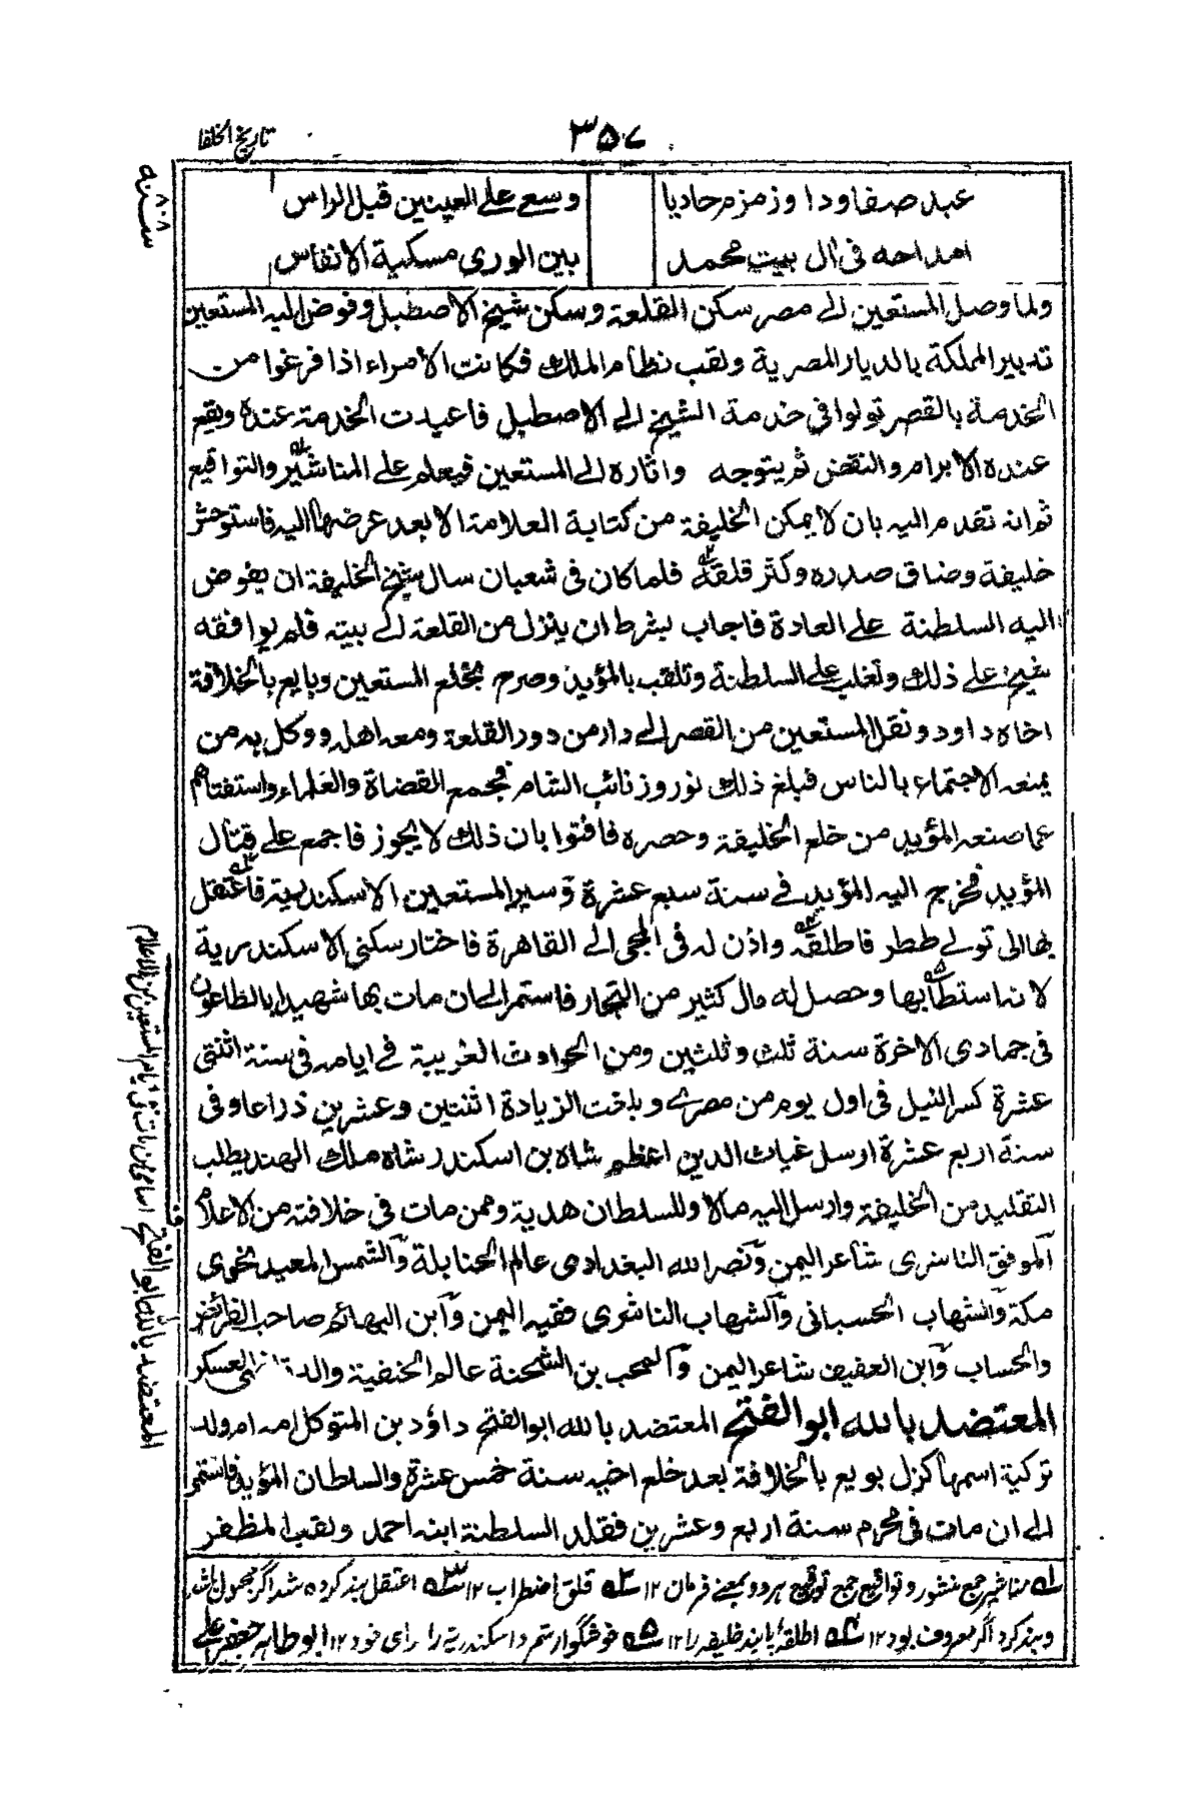 ٣٥٧
تاريخ الخلفا
سنة ٨٠٨
عبد صفاود اوزمزم حاديا
وسع على العينين قبل الراس
امداحه فى ال بيت محمد
بين الورى مسكية الانفاس
ولما وصل المستعين الى مصر سكن القلعة وسكن شيخ الاصطبل وفوض اليه المستعين
تدبير المملكة بالديار المصرية ولقب نظام الملك فكانت الأمراء اذا فرغوا من
الخدمة بالقصر تولوا فى خدمة الشيخ الى الاصطبل فاعيدت الخدمة عنده ويقع
عنده الابرام والنقض ثم يتوجه واثاره الى المستعين فيعلم على المناشير والتواقيع
ثم انه تقدم اليه بان لا يمكن الخليفة من كتابة العلامة الا بعد عرضها اليه فاستوحش
خليفة وضاق صدره وكثر قلقه فلما كان فى شعبان سال شيخ الخليفة ان يفوض
اليه السلطنة على العادة فاجاب بشرط ان ينزل من القلعة الى بيته فلم يوافقه
شيخ على ذلك وتغلب على السلطنة وتلقب بالمؤيد وصرح بخلع المستعين وبايع بالخلافة
اخاه داود ونقل المستعين من القصر الى دار من دور القلعة ومعه اهله ووكل به من
يمنعه الاجتماع بالناس فبلغ ذلك نوروز نائب الشام فجمع القضاة والعلماء واستفتاهم
عما صنعه المؤيد من خلع الخليفة وحصره فافتوا بان ذلك لا يجوز فاجمع على قتال
المؤيد فخرج اليه المؤيد فى سنة سبع عشرة وسير المستعين الاسكندرية فاعتقل
بهاالى تولى ططر فاطلقه واذن له فى المجى الى القاهرة فاختار سكنى الاسكندرية
لانه استطابها وحصل له مال كثير من التجار فاستمر الى ان مات بها شهيدا بالطاعون
فى جمادى الاخرة سنة ثلث وثلثين ومن الحوادث الغريبة فى ايامه فى سنة اثنتى
عشرة كسر النيل فى اول يوم من مصرى وبلغت الزيادة اثنتين وعشرين ذراعا وفى
سنة اربع عشرة ارسل غياث الدين اعظم شاه بن اسكندر شاه ملك الهند يطلب
التقليد من الخليفة وارسل اليه مالا وللسلطان هدية وممن مات فى خلافته من الاعلام
الموفق الناشرى شاعر اليمن ونصر الله البغدادى عالم الحنابلة والشمس المعيد نحوى
مكة والشهاب الحسبانى والشهاب الناشرى فقيه اليمن وابن الهائم صاحب الفرائض
والحساب وابن العفيف شاعر اليمن والمحب بن الشحنة عالم الحنفية والد قاضى العسكر
المعتضد بالله ابو الفتح المعتضد بالله ابو الفتح داؤد بن المتوكل امه ام ولد
تركية اسمها كزل بويع بالخلافة بعد خلع اخيه سنة خمس عشرة والسلطان المؤيد فاستمر
الى ان مات فى محرم سنة اربع وعشرين فقلد السلطنة ابنه احمد ولقب المظفر
له مناشير جمع منشور و تواقيع جمع توقيع هردو بمعنى فرمان ١٢ له قلق اضطراب ١٢ له اعتقل بند كرده شد اگر مجهول باشد
و بند كرد اگر معروف بود ١٢ اطلقه خليفه را ١٢ خوشگوار اسكندرية را رأى خود ١٢ ابو طاهر جعفر على
المعتضد بالله ابو الفتح